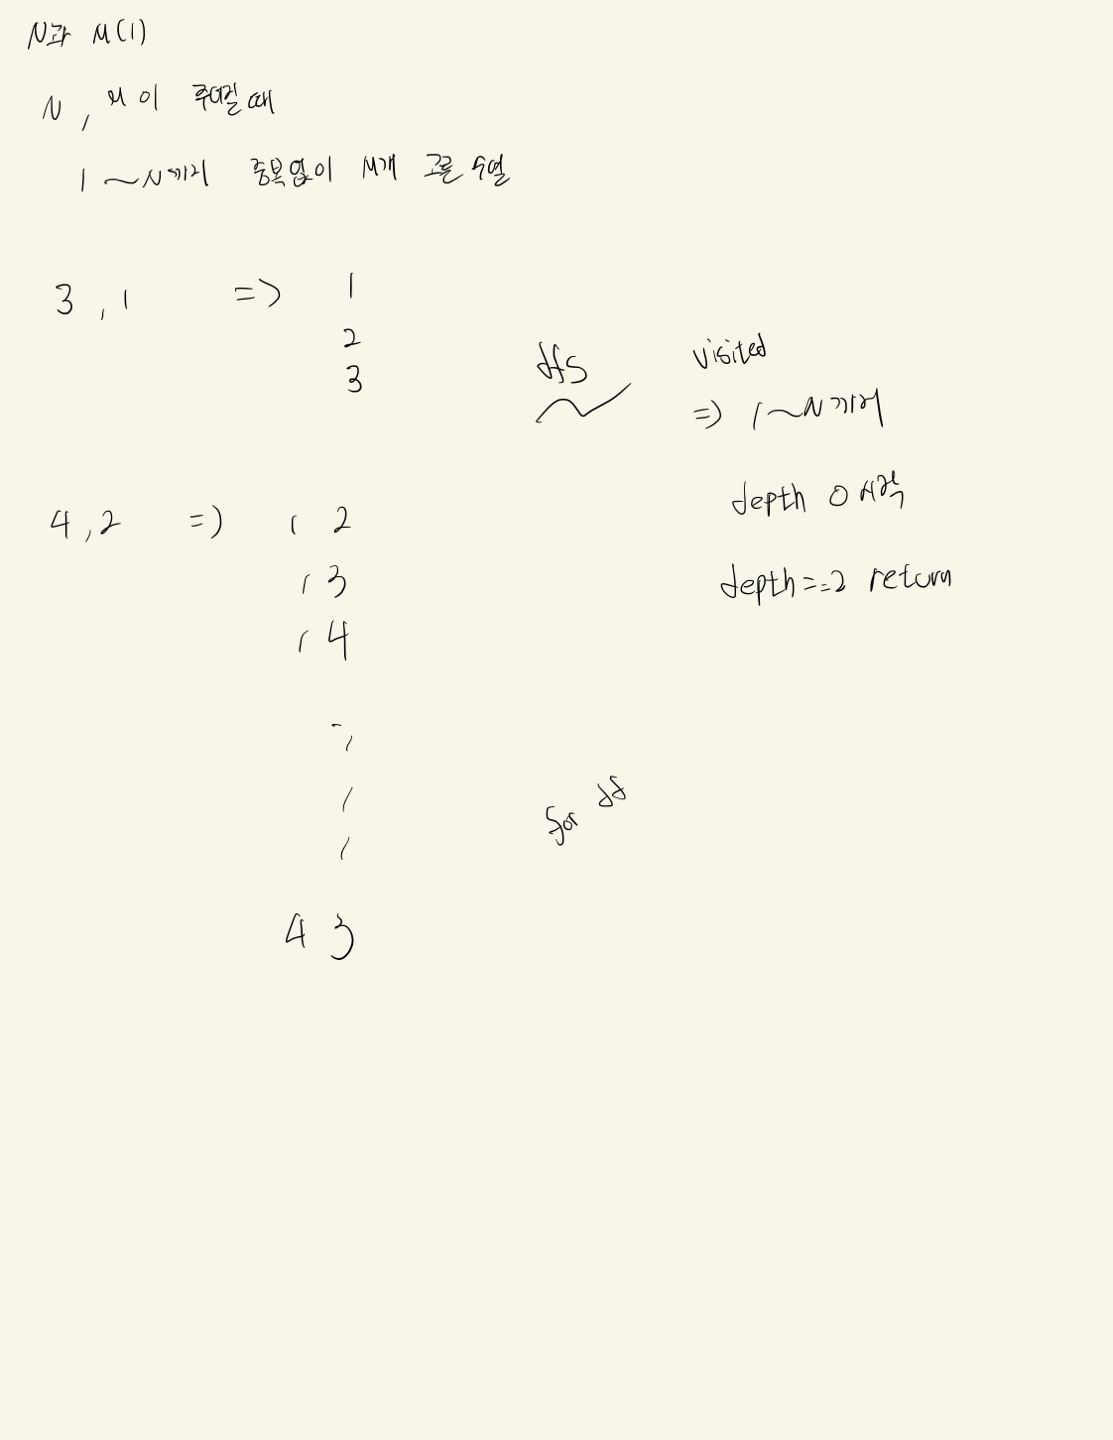 N과 M(1)
N, M이 주어질 때
1~N까지 중복없이 M개 고른 수열
3, 1 => 1
2
3
4, 2 => 1 2
1 3
1 4
4 3
dfs
visited
=> 1~N까지
depth 0 시작
depth==2 return
for